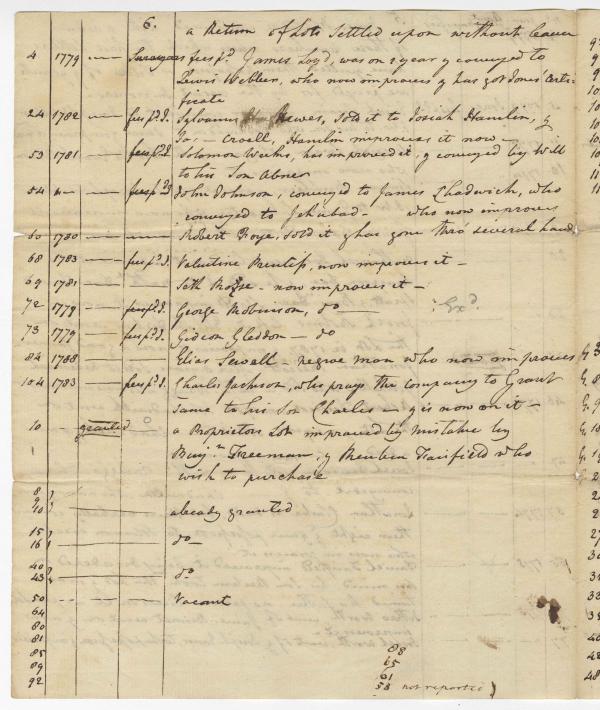 6.
a Return of Lots Settled upon without leave
4 1779 — fees pd. James Loyd, was on 1 year & conveyed to
Lewis Webber, who now improves & has got Jones' Certi-
ficate
24 1782 — fees pd. Sylvanus Hewes, Sold it to Josiah Hamlin, &
Croell, Hamlin improves it now —
53 1781 — fees pd. Solomon Weeks, has improved it, & conveyed by Will
to his Son Abner
54 fees pd. John Johnson, conveyed to James Chadwick, who
conveyed to — who now improves
60 1780 — Robert sold it & has gone thro' several hands
68 1783 — fees pd. Valentine Prentiss, now improves it —
69 1781 — Seth now improves it —
72 1779 — fees pd. George Robinson, do — Exd.
73 1779 — fees pd. Gideon Gleddon — do
84 1788 — Elias Sewall — negroe man who now improves
104 1783 — fees pd. Charles Jackson, who prays the company to Grant
Same to his Son Charles — & is now on it —
10 — granted — a Proprietors Lot improved by mistake by
Benjn. Freeman, & Reuben Fairfield who
wish to purchase
8
9
10 — already granted
15
16 — do —
40
43 — do
50 — Vacant
64
80
81
85
89
92
88
65
61
53 not reported